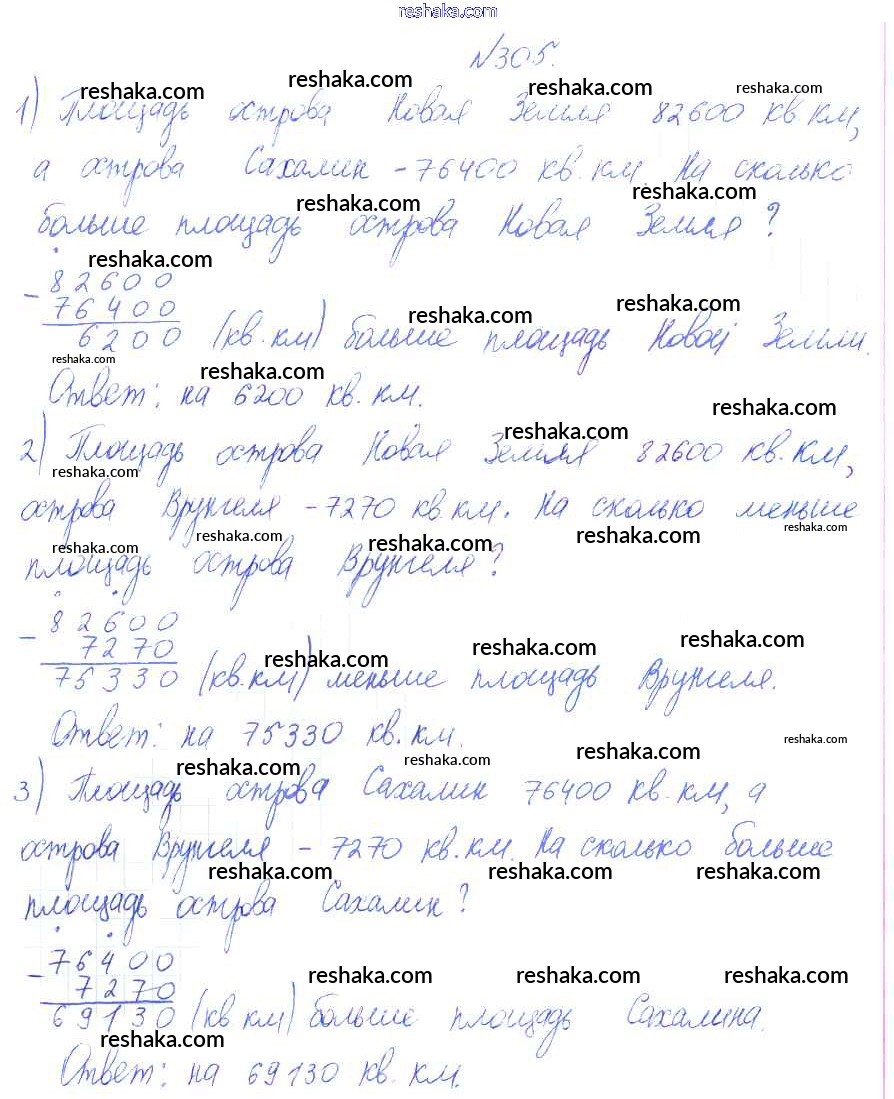 reshaka.com
№305.
reshaka.com reshaka.com reshaka.com reshaka.com
1) Площадь острова Новая Земля 82600 кв км,
а острова Сахалин - 76400 кв. км. На сколько
reshaka.com reshaka.com
больше площадь острова Новая Земля?
reshaka.com
- 82600
76400
reshaka.com reshaka.com
6200 (кв. км) больше площадь Новой Земли.
reshaka.com reshaka.com
Ответ: на 6200 кв. км.
reshaka.com reshaka.com
2) Площадь острова Новая Земля 82600 кв. км,
reshaka.com
острова Врунгеля - 7270 кв. км. На сколько меньше
reshaka.com reshaka.com reshaka.com reshaka.com reshaka.com
площадь острова Врунгеля?
- 82600
7270
reshaka.com reshaka.com reshaka.com
75330 (кв. км) меньше площадь Врунгеля.
Ответ: на 75330 кв. км.
reshaka.com reshaka.com reshaka.com reshaka.com
3) Площадь острова Сахалин 76400 кв. км, а
острова Врунгеля - 7270 кв. км. На сколько больше
reshaka.com reshaka.com reshaka.com
площадь острова Сахалин?
- 76400
7270
reshaka.com reshaka.com reshaka.com
69130 (кв км) больше площадь Сахалина.
reshaka.com
Ответ: на 69130 кв. км.